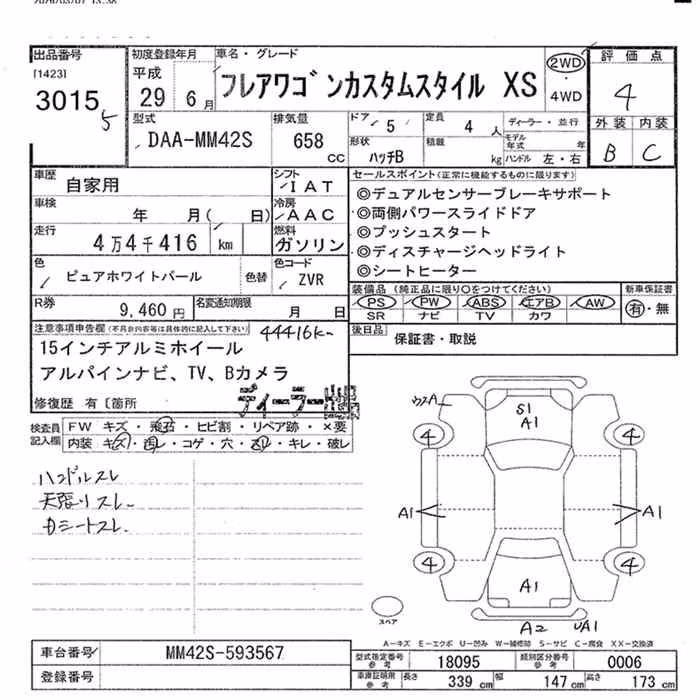 出品番号
[1423]
3015
5
初度登録年月
平成
29 6 月
車名・グレード
フレアワゴンカスタムスタイル XS
2WD
・
4WD
評価点
4
外装 内装
B C
型式
DAA-MM42S
排気量
658
CC
ドア 5
形状 ハッチB
定員 4 人
積載 kg
ディーラー・並行
モデル年式 年
ハンドル 左・右
車歴 自家用
車検 年 月( 日)
走行 4万4千416 km
シフト IAT
冷房 AAC
燃料 ガソリン
セールスポイント(正常に機能するものに限ります)
◎デュアルセンサーブレーキサポート
◎両側パワースライドドア
◎プッシュスタート
◎ディスチャージヘッドライト
◎シートヒーター
色 ピュアホワイトパール 色替
色コード ZVR
R券 9,460 円
名変通知期限 月 日
装備品(純正品に限り○をつけてください)
PS PW ABS エアB AW
SR ナビ TV カワ
新車保証書
有・無
後日品 保証書・取説
注意事項申告欄(不具合内容等は具体的に記入して下さい)
44416k
15インチアルミホイール
アルパインナビ、TV、Bカメラ
ディーラー
修復歴 有〔箇所
検査員記入欄
FW キズ・飛石・ヒビ割・リペア跡・×要
内装 キズ・汚レ・コゲ・穴・スレ・キレ・破レ
ハンドルスレ
天張りスレ
カシートスレ
ウスA
S1
A1
4 4
A1 A1
4 4
A1
A2 UA1
スペア
A-キズ E-エクボ U-凹み W-補修跡 S-サビ C-腐食 XX-交換済
車台番号 MM42S-593567
登録番号
型式指定番号 参考 18095
類別区分番号 参考 0006
車庫証明用 参考 長さ 339 cm 幅 147 cm 高さ 173 cm